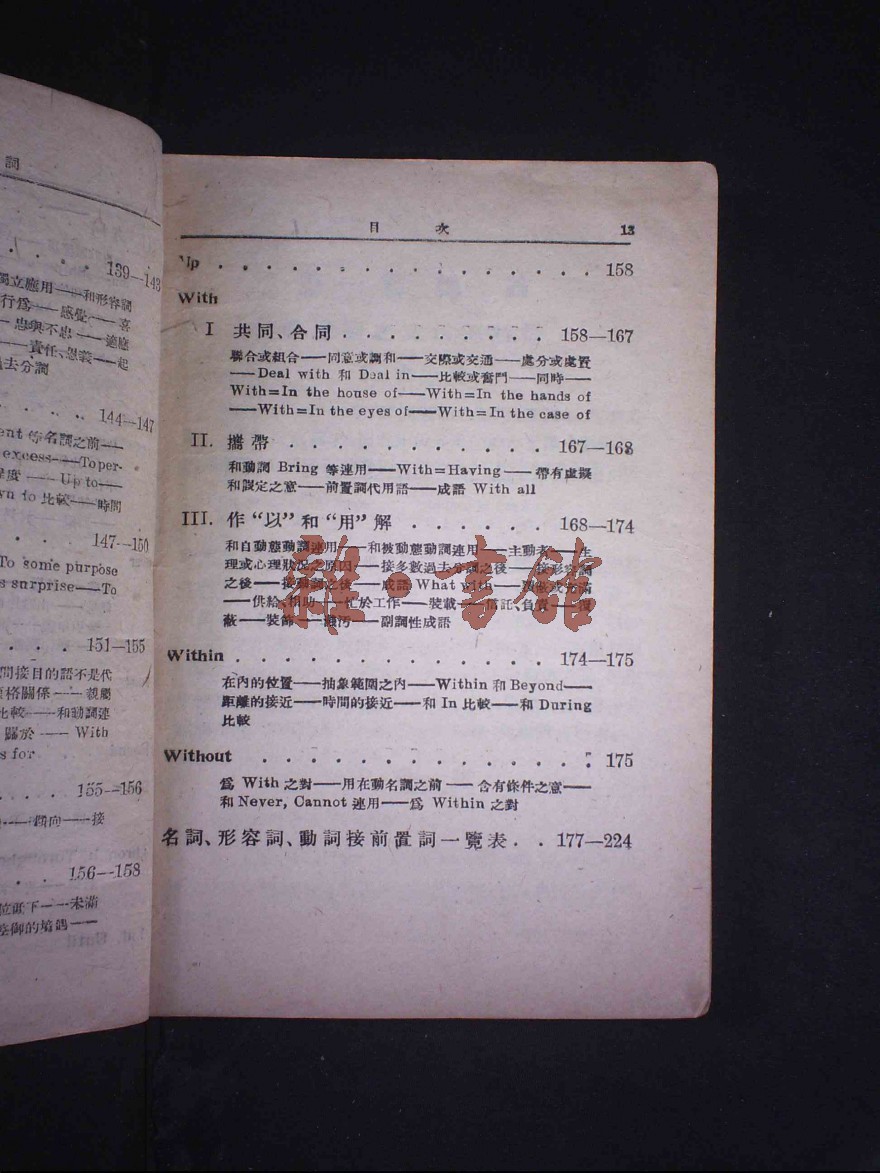 詞
139—143
獨立應用——和形容詞
行爲——感覺——喜
忠與不忠——適應
責任、恩義——起
過去分詞
144—147
ent 等名詞之前——
excess——To per-
程度——Up to——
wn to 比較——時間
147—150
To some purpose
s surprise——To
151—155
間接目的語不是代
格關係——親屬
比較——和動詞連
關於——With
s for
155—156
傾向——接
156—158
位班下——未滿
目 次 13
Up 158
With
I 共同、合同 158—167
聯合或組合——同意或調和——交際或交通——處分或處置
——Deal with 和 Deal in——比較或奮鬥——同時——
With=In the house of——With=In the hands of
——With=In the eyes of——With=In the case of
II. 攜帶 167—168
和動詞 Bring 等連用——With=Having——帶有虛擬
和設定之意——前置詞代用語——成語 With all
III. 作“以”和“用”解 168—174
和自動態動詞連用——和被動態動詞連用——主動者——生
理或心理狀況之原因——接多數過去分詞之後——接形容詞
之後——接動詞之後——成語 What with——
——供給、相助——忙於工作——裝載——信託、負責——覆
蔽——裝飾——濺汚——副詞性成語
雜·書館
Within 174—175
在內的位置——抽象範圍之內——Within 和 Beyond——
距離的接近——時間的接近——和 In 比較——和 During
比較
Without 175
爲 With 之對——用在動名詞之前——含有條件之意——
和 Never, Cannot 連用——爲 Within 之對
名詞、形容詞、動詞接前置詞一覽表 177—224